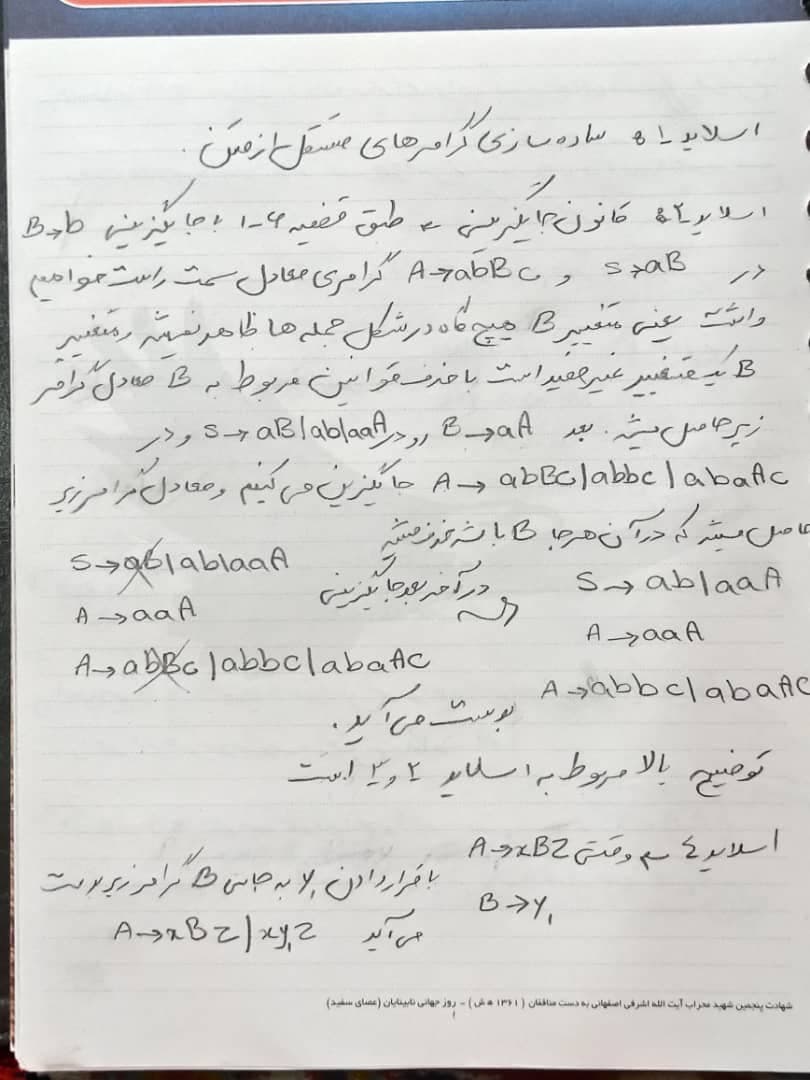 اسلاید ۱: ساده سازی گرامرهای مستقل از متن.
اسلاید ۲: قانون جایگزینی → طبق قضیه ۶-۱ با جایگزینی B→b
در S→aB و A→abBc گرامری معادل سمت راست خواهیم
داشت یعنی متغییر B هیچ گاه در شکل جمله ها ظاهر نمیشه و متغییر
B یک متغییر غیر مفید است با حذف قوانین مربوط به B معادل گرامر
زیر حاصل میشه. بعد B→aA رو در S→aB|ab|aaA و در
A→abBc|abbc|abaAc جایگزین می کنیم و معادل گرامر زیر
حاصل میشه که در آن هرجا B باشه حذف میشه
S→aB|ab|aaA در آخر بعد جایگزینی S→ab|aaA
A→aaA A→aaA
A→abBc|abbc|abaAc A→abbc|abaAc
بدست می آید.
توضیح بالا مربوط به اسلاید ۲ و ۳ است
اسلاید ۴ → وقتی A→xBz با قرار دادن y₁ به جای B گرامر زیر بدست
B→y₁
می آید A→xBz|xy₁z
شهادت پنجمین شهید محراب آیت الله اشرفی اصفهانی به دست منافقان (۱۳۶۱ ه ش) - روز جهانی نابینایان (عصای سفید)